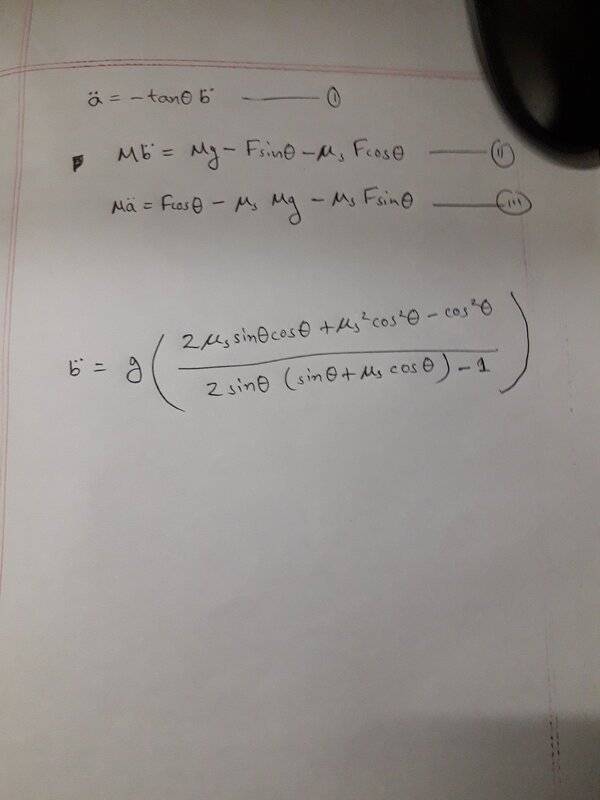 ä = -tanθ b̈ —— ⓘ
M b̈ = Mg - Fsinθ - μₛ Fcosθ —— (ii)
Mä = Fcosθ - μₛ Mg - μₛ Fsinθ —— (iii)
b̈ = g ( (2μₛsinθcosθ + μₛ²cos²θ - cos²θ) / (2sinθ (sinθ + μₛ cosθ) - 1) )